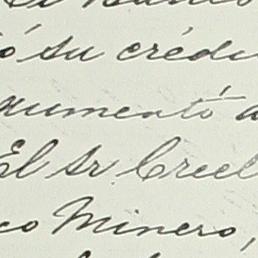 ó su crédi
aumentó a
El Sr. Creel
co Minero,